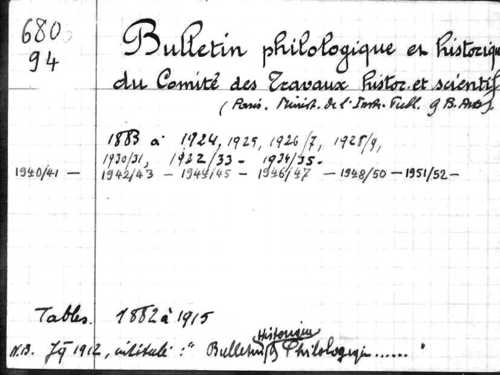 680
94
Bulletin philologique et historique
du Comité des Travaux histor. et scientif.
(Paris. Minist. de l'Instr. Publ. & B. Arts).
1883 à 1924, 1925, 1926/7, 1928/9,
1930/31, 1932/33 - 1934/35 -
1940/41 - 1942/43 - 1944/45 - 1946/47 - 1948/50 - 1951/52 -
Tables. 1882 à 1915
Historique
N.B. Jq 1912, intitulé : " Bulletin & Philologiqu ...... "